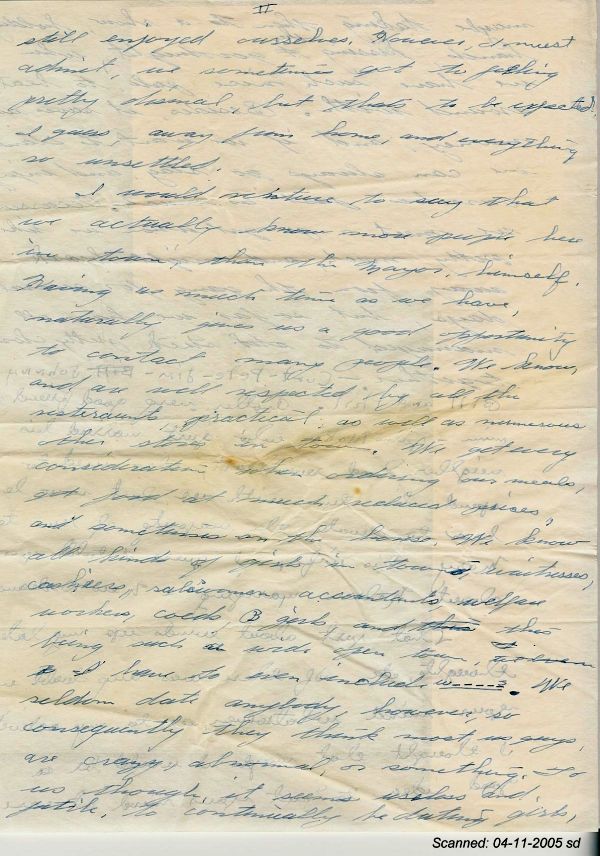 II
still enjoyed ourselves, However, I must
admit, we sometimes get to feeling
pretty dismal, but thats to be expected,
I guess, away from home, and everything
so unsettled.
I would venture to say that
we actually know more people here
in town, than the Mayor, himself.
Having as much time as we have,
naturally gives us a good opportunity
to contact many people. We know,
and are well respected by all the
restaraunts, practical, as well as numerous
other stores in town. We get every
consideration when ordering our meals,
get food at much reduced prices,
and sometimes on the house. We know
all kinds of girls in town, waitresses,
cashiers, saleswomen, accountants, welfare
workers, coeds, B girls, and this
being such a wide open town,
I have to even include w-----s. We
seldom date anybody, however, so
consequently they think most us guys,
are crazy, abnormal, or something. To
us though, it seems useless and
futile, to continually be dating girls,
Scanned: 04-11-2005 sd